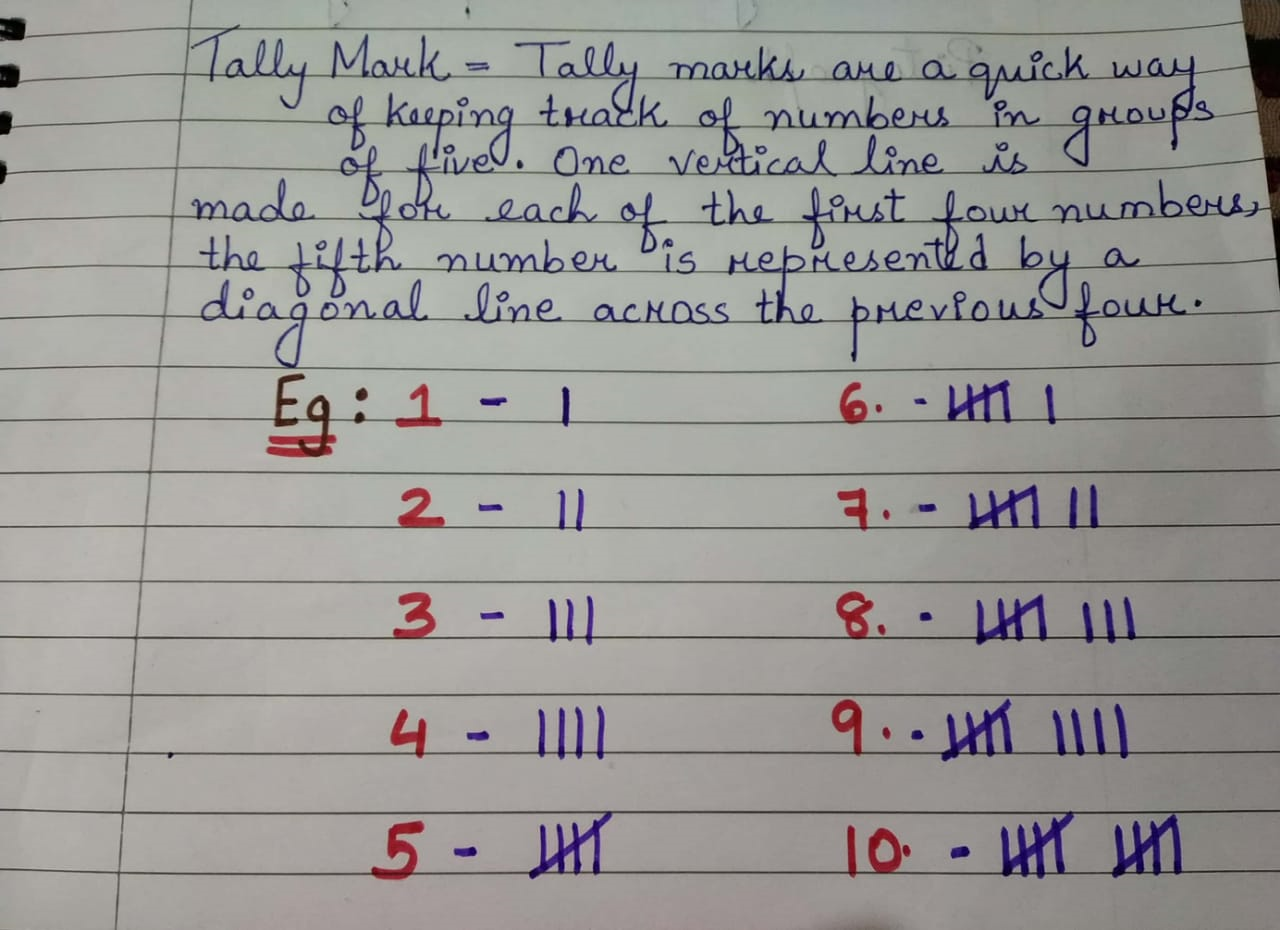 Tally Mark = Tally marks are a quick way
of keeping track of numbers in groups
of five. One vertical line is
made for each of the first four numbers,
the fifth number is represented by a
diagonal line across the previous four.
Eg: 1 - | 6. - 卌 |
2 - || 7. - 卌 ||
3 - ||| 8. - 卌 |||
4 - |||| 9. - 卌 ||||
5 - 卌 10. - 卌 卌